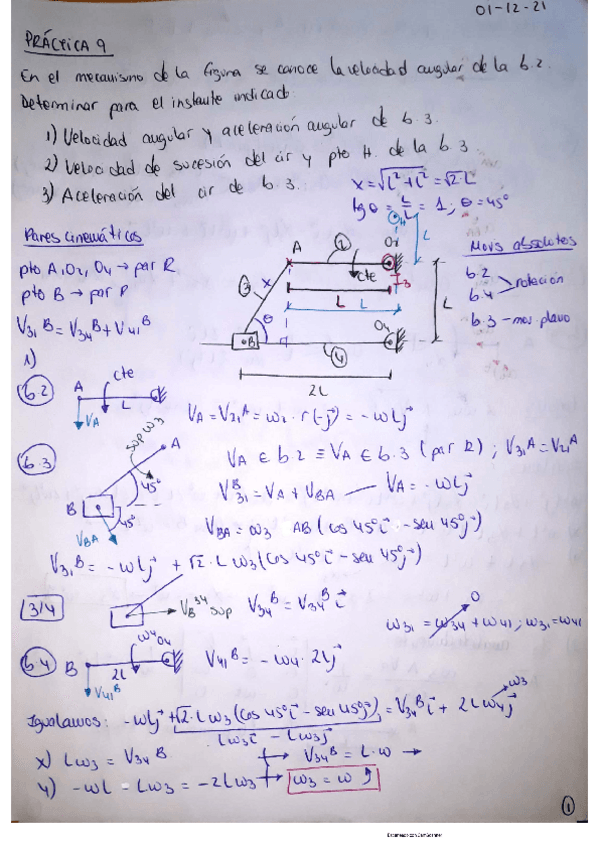 01-12-21
PRÁCTICA 9
En el mecanismo de la figura se conoce la velocidad angular de la b.2.
Determinar para el instante indicado:
1) Velocidad angular y aceleración angular de b.3.
2) Velocidad de sucesión del cir y pto H. de la b.3
3) Aceleración del cir de b.3.
x = √L²+L² = √2 L
tgθ = L/L = 1 ; θ = 45°
Pares cinemáticos
pto A, O2, O4 → par R
pto B → par P
V31^B = V34^B + V41^B
A
2
O2
cte
L
L
L
L
3
x
θ
B
O4
4
2L
Movs absolutos
b.2
b.4
rotación
b.3 - mov plano
1)
b.2
A
cte
L
VA
VA = V21^A = ω2 · r (-j) = -ωL j
b.3
sup ω3
A
45°
B
45°
VBA
VA ∈ b.2 ≡ VA ∈ b.3 (par R) ; V31^A = V21^A
V31^B = VA + VBA — VA = -ωL j
VBA = ω3 AB (cos 45° i - sen 45° j)
V31^B = -ωL j + √2 · L ω3 (cos 45° i - sen 45° j)
3/4
VB^34 sup
V34^B = V34^B i
0
ω31 = ω34 + ω41 ; ω31 = ω41
b.4
B
ω4
O4
2L
V41^B
V41^B = -ω4 · 2L j
Igualamos: -ωL j + √2 · L ω3 (cos 45° i - sen 45° j) = V34^B i + 2L ω4 j
ω3
Lω3 i - Lω3 j
x) Lω3 = V34^B
V34^B = L · ω →
y) -ωL - Lω3 = -2Lω3
ω3 = ω
1